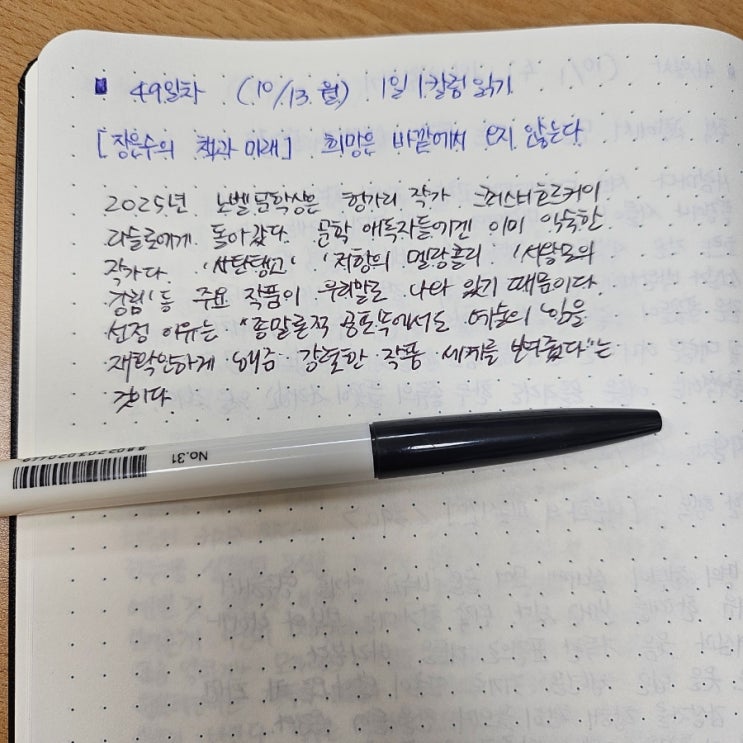 49일차 (10/13.월) 1일 1칼럼 읽기
[장은수의 책과 미래] 희망은 바깥에서 오지 않는다
2025년 노벨문학상은 헝가리 작가 크러스너호르커이
라슬로에게 돌아갔다. 문학 애독자들에겐 이미 익숙한
작가다. '사탄탱고' '저항의 멜랑콜리' '서왕모의
강림' 등 주요 작품이 우리말로 나와 있기 때문이다.
선정 이유는 "종말론적 공포 속에서도 예술의 힘을
재확인하게 해준 강렬한 작품 세계를 보여줬다"는
것이다.
No.31